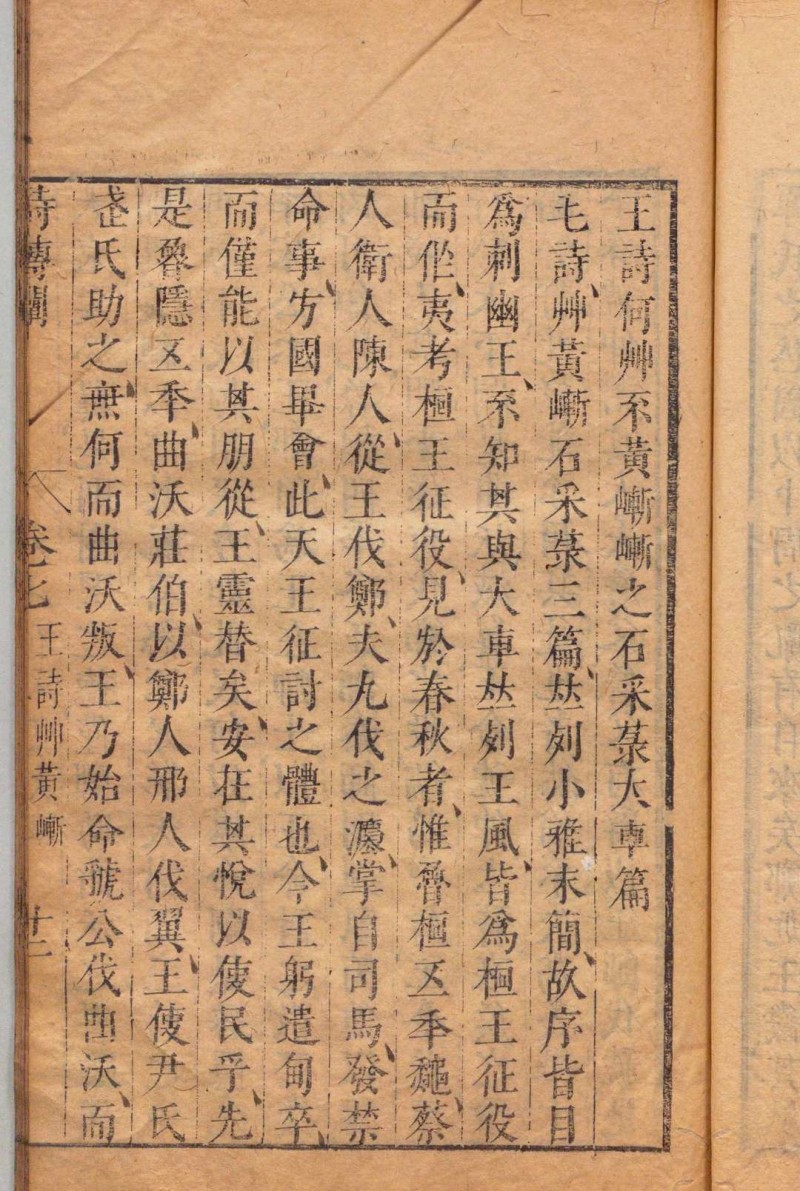 王詩何艸不黃嶃嶃之石采菉大車篇
毛詩、艸黃嶃石采菉三篇、竝列小雅末簡、故序皆目
爲刺幽王、不知其與大車竝列王風、皆爲桓王征役
而作、夷考桓王征役、見於春秋者、惟魯桓五年、蔡
人衛人陳人、從王伐鄭、夫九伐之灋、掌自司馬、發禁
命事、方國畢會、此天王征討之體也、今王躬遣甸卒、
而僅能以其朋從、王靈替矣、安在其悅以使民乎、先
是魯隱五年、曲沃莊伯、以鄭人邢人伐翼、王使尹氏
武氏助之、無何而曲沃叛、王乃始命虢公伐曲沃、而
詩傳闡 卷七 王詩艸黃嶃 廿二